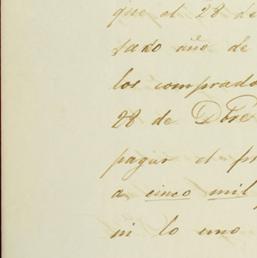 que el 28 de
sado año de
los comprado
28 de Dbre
pagar el pr
a cinco mil
ni lo uno